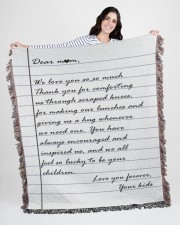 Dear mom,
We love you so, so much
Thank you for comforting
us through scraped knees,
for making our lunches and
giving us a hug whenever
we need one. You have
always encouraged and
inspired us, and we all
feel so lucky to be your
children.
Love you forever,
Your kids